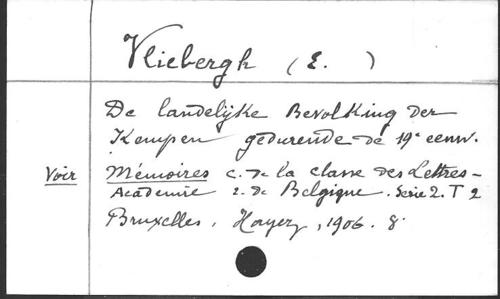 Vliebergh (E. )
De landelijke Bevolking der
Kempen gedurende de 19e eeuw.
Voir Mémoires c. de la classe des Lettres -
Academie r. de Belgique. Serie 2. T 2
Bruxelles, Hayez, 1906. 8°